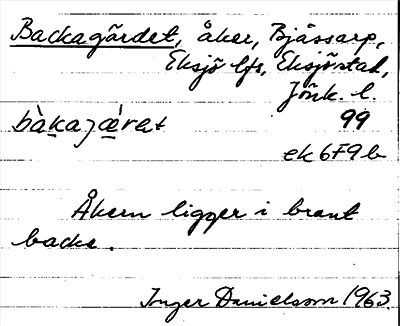 Backagärdet, åker, Bjässarp,
Eksjö lfs, Eksjö stad,
Jönk. l.
bàkajæ̀rat 99
ek 6F9b
Åkern ligger i brant
backe.
Inger Danielsson 1963.